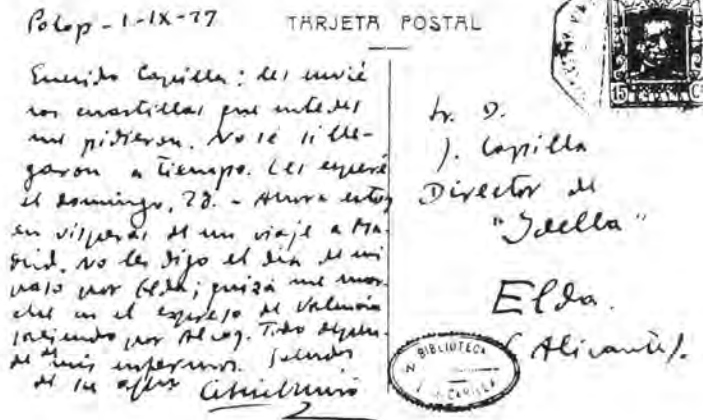 Polop - 1-IX-27
TARJETA POSTAL
Querido Capilla: les envié
las cuartillas que ustedes
me pidieron. No sé si lle-
garon a tiempo. Les esperé
el domingo, 28. - Ahora estoy
en vísperas de un viaje a Ma-
drid. No les digo el día de mi
paso por Elda; quizá me mar-
che en el expreso de Valencia
saliendo por Alcoy. Todo depen-
de de mis enfermos. Saludos
de su afmo
15 ESPAÑA Cs
Sr. D.
J. Capilla
Director de
"Idella"
Elda.
(Alicante).
BIBLIOTECA
CAPILLA